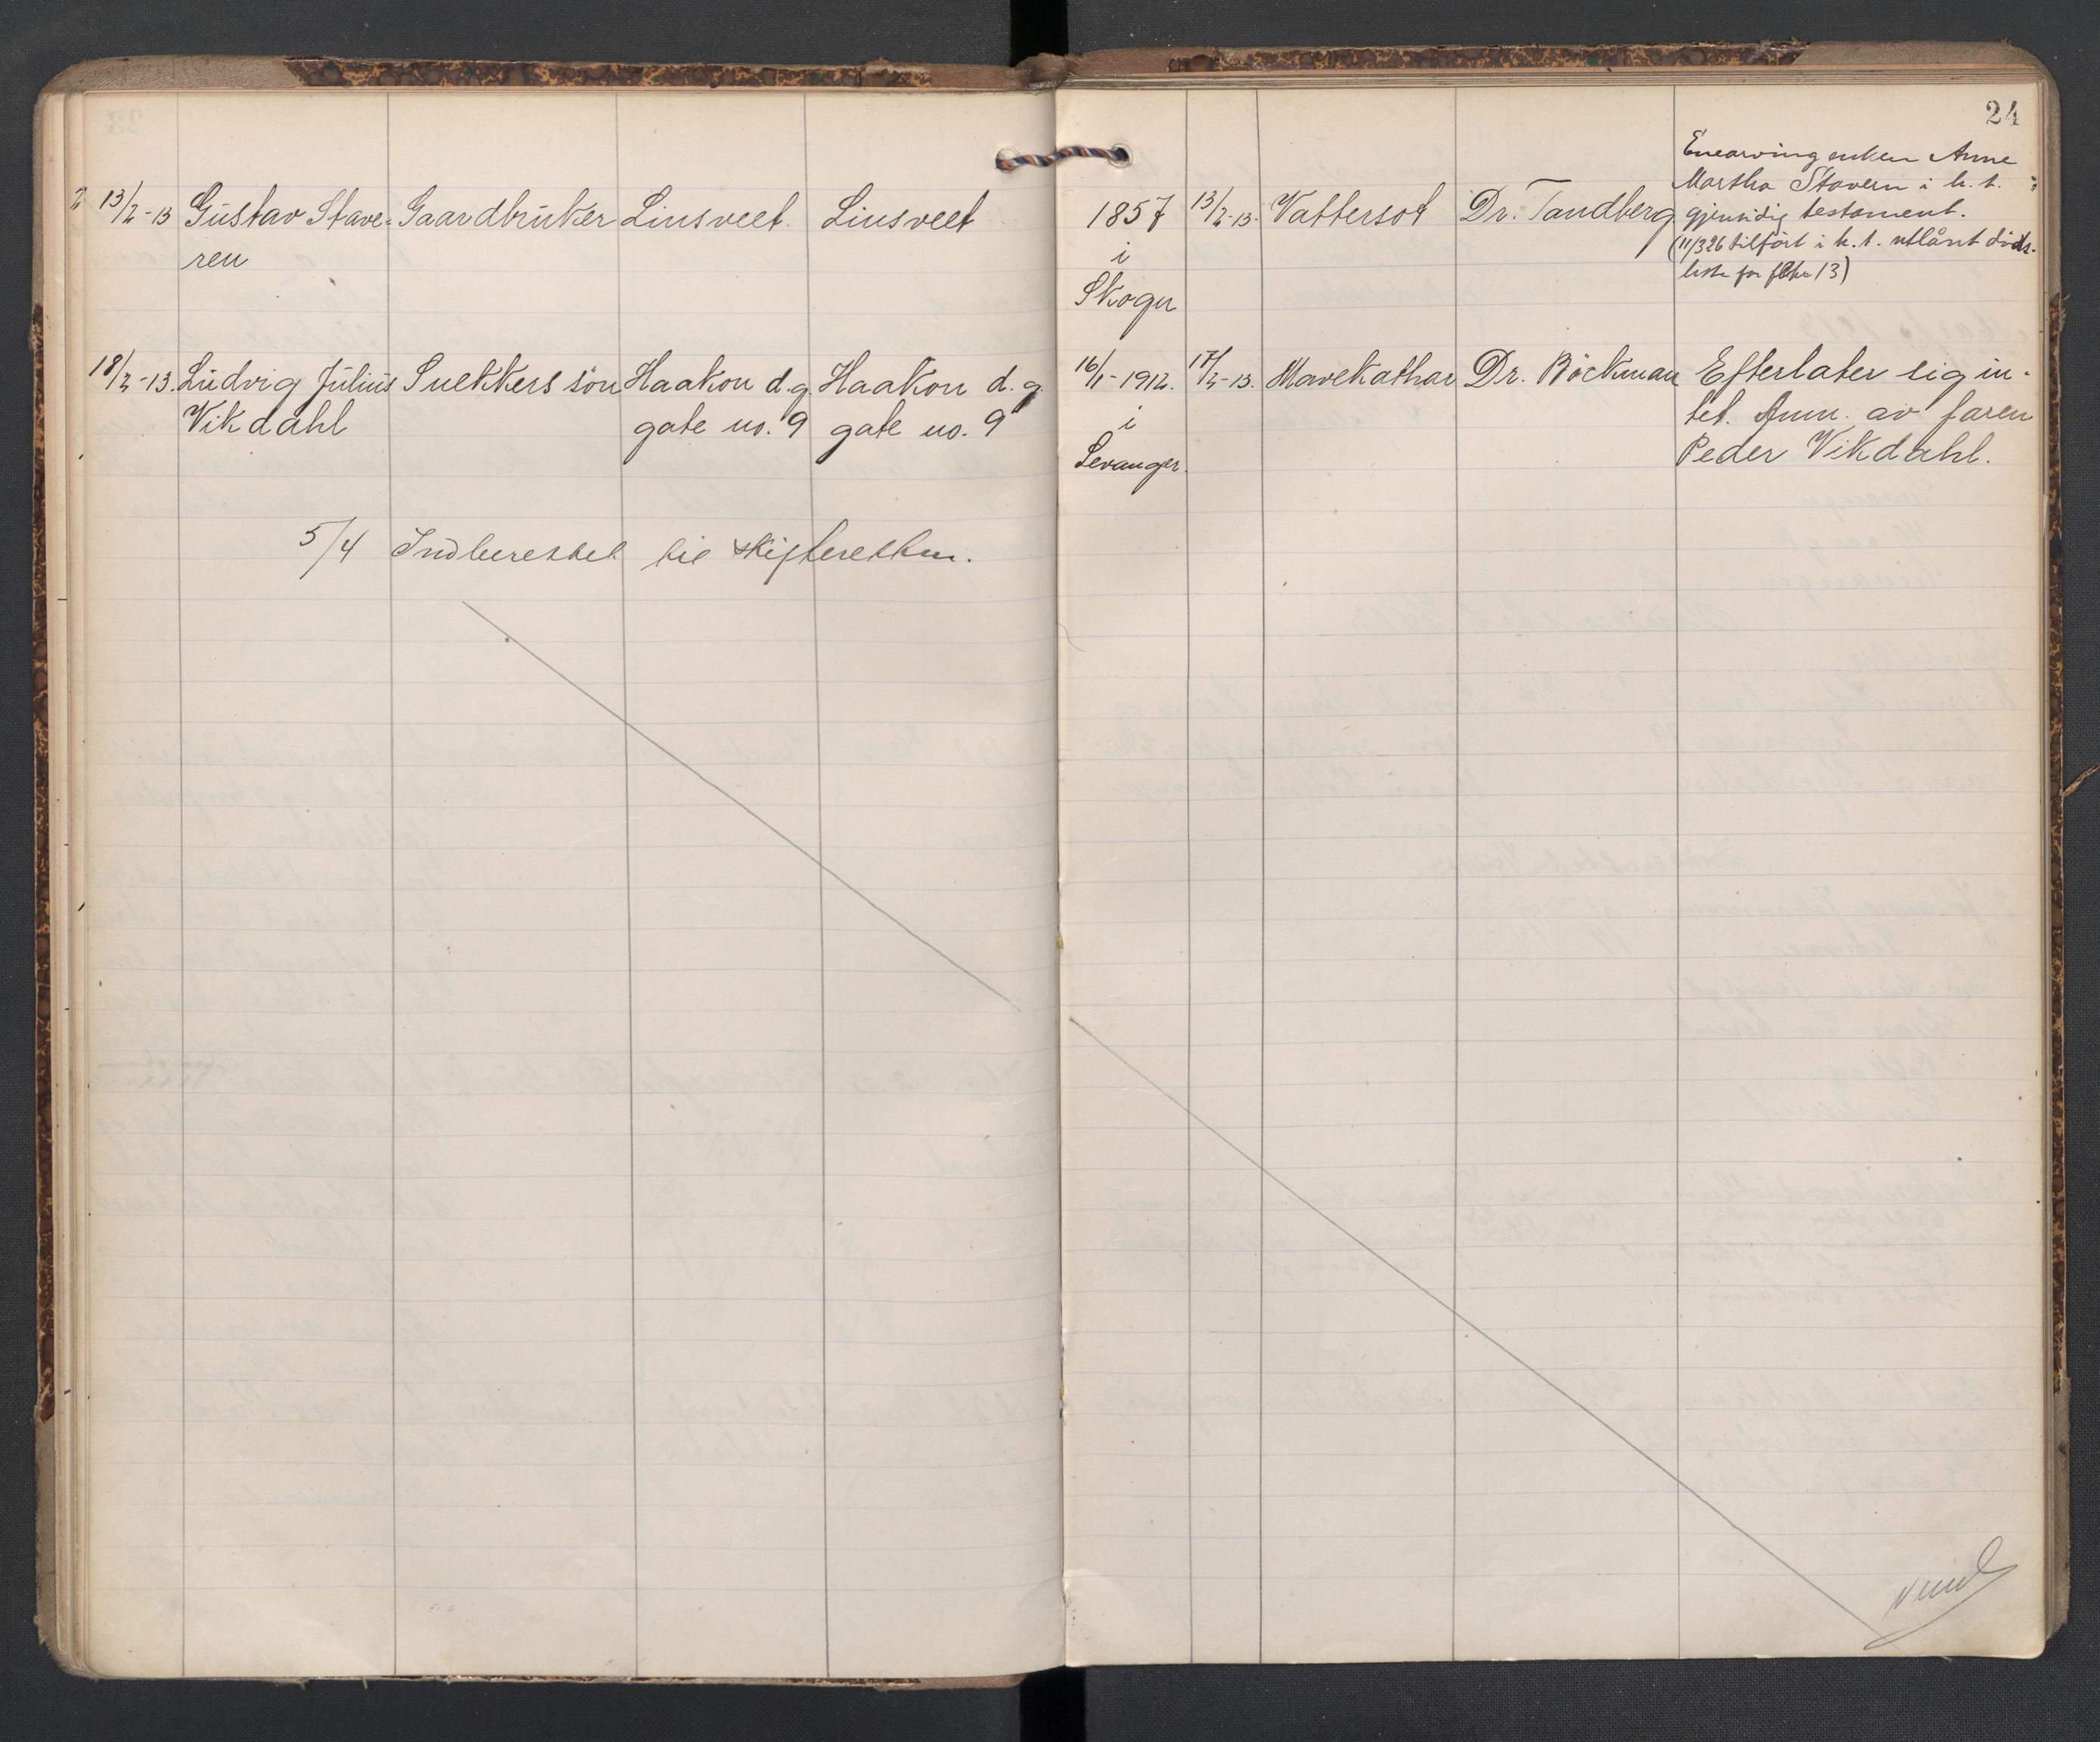 24
2 13/2-13 Gustav Stave- Gaardbruker Linsveet Linsveet
ren
1857 13/2-13. Vattersot Dr. Tandberg
i
Skoger
Enearving enken Anne
Martha Stavern i h. t.
gjensidig testament.
(11/3 26 tilført i h. t. utlånt døds-
liste for febr 13)
18/2-13. Ludvig Julius Snekkers sön Haakon d. g. Haakon d. g.
Vikdahl gate no. 9 gate no. 9
16/1-1912. 17/2-13. Mavekathar Dr. Böckman Efterlater sig in-
i tet. Anm. av faren
Levanger. Peder Vikdahl.
5/4 Indberettet til skifteretten.